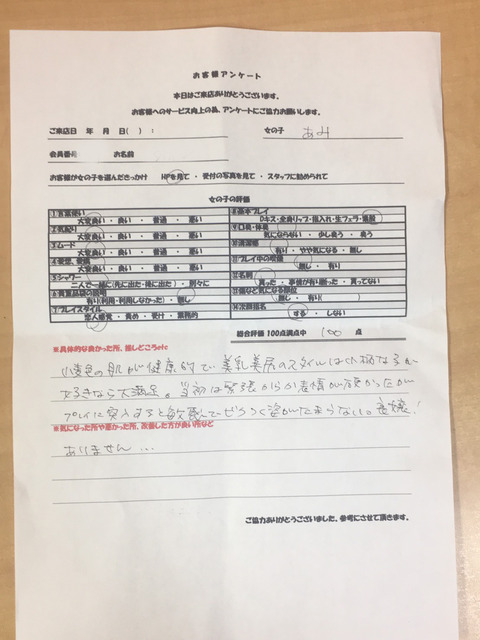 お客様アンケート
本日はご来店ありがとうございます。
お客様へのサービス向上の為、アンケートにご協力お願いします。
ご来店日 年 月 日( ) : 女の子 あみ
会員番号 お名前
お客様が女の子を選んだきっかけ HPを見て ・ 受付の写真を見て ・ スタッフに勧められて
女の子の評価
1)言葉使い
大変良い ・ 良い ・ 普通 ・ 悪い
2)気配り
大変良い ・ 良い ・ 普通 ・ 悪い
3)ムード
大変良い ・ 良い ・ 普通 ・ 悪い
4)愛想、愛嬌
大変良い ・ 良い ・ 普通 ・ 悪い
5)シャワー
二人で一緒に(先に出た・後に出た) ・ 別々に
6)貴重品袋の説明
有り(利用・利用しなかった) ・ 無し
7)プレイスタイル
恋人感覚 ・ 責め ・ 受け ・ 業務的
8)基本プレイ
Dキス・全身リップ・指入れ・生フェラ・素股
9)口臭・体臭
気にならない ・ 少し臭う ・ 臭う
10)清潔感
有り ・ やや気になる ・ 無し
11)プレイ中の収穫
無し ・ 有り
12)名刺
貰った ・ 事情が有り断った ・ 貰ってない
13)傷など気になる部位
無し ・ 有り( )
14)次回指名
する ・ しない
総合評価 100点満点中 100 点
※具体的な良かった所、推しどころetc
小麦色の肌が健康的で、美乳美尻のスタイルは小柄な子が
好きなら大満足。当初は緊張からか表情が硬かったが
プレイに突入すると敏感でビクつく姿がたまらない。良嬢!
※気になった所や悪かった所、改善した方が良い所など
ありません…
ご協力ありがとうございました。参考にさせて頂きます。